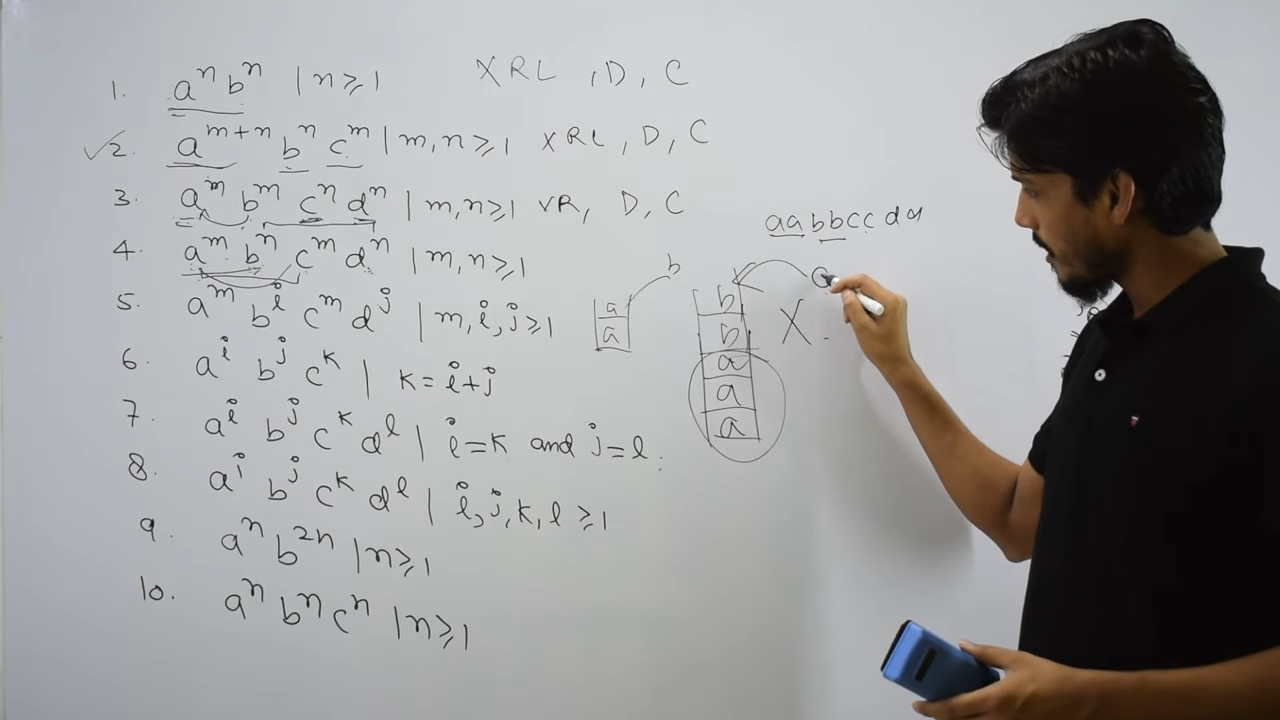 1. aⁿ bⁿ | n ≥ 1 X RL , D , C
✓2. aᵐ⁺ⁿ bⁿ cᵐ | m, n ≥ 1 X RL , D , C
3. aᵐ bᵐ cⁿ dⁿ | m, n ≥ 1 XR, D, C
aabbccdd
4. aᵐ bⁿ cᵐ dⁿ | m, n ≥ 1
5. aᵐ bⁱ cᵐ dʲ | m, i, j ≥ 1
6. aⁱ bʲ cᵏ | k = i + j
7. aⁱ bʲ cᵏ dˡ | i = k and j = l.
8. aⁱ bʲ cᵏ dˡ | i, j, k, l ≥ 1
9. aⁿ b²ⁿ | n ≥ 1
10. aⁿ bⁿ cⁿ | n ≥ 1
b
a
a
b
b
a
a
a
X